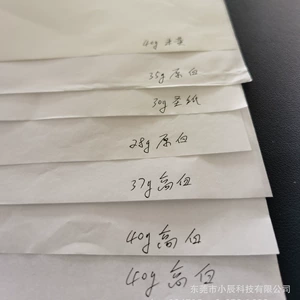 40g
35g 原白
30g 圣纸
28g 原白
37g 高白
40g 高白
40g 高白
东莞市小辰科技有限公司